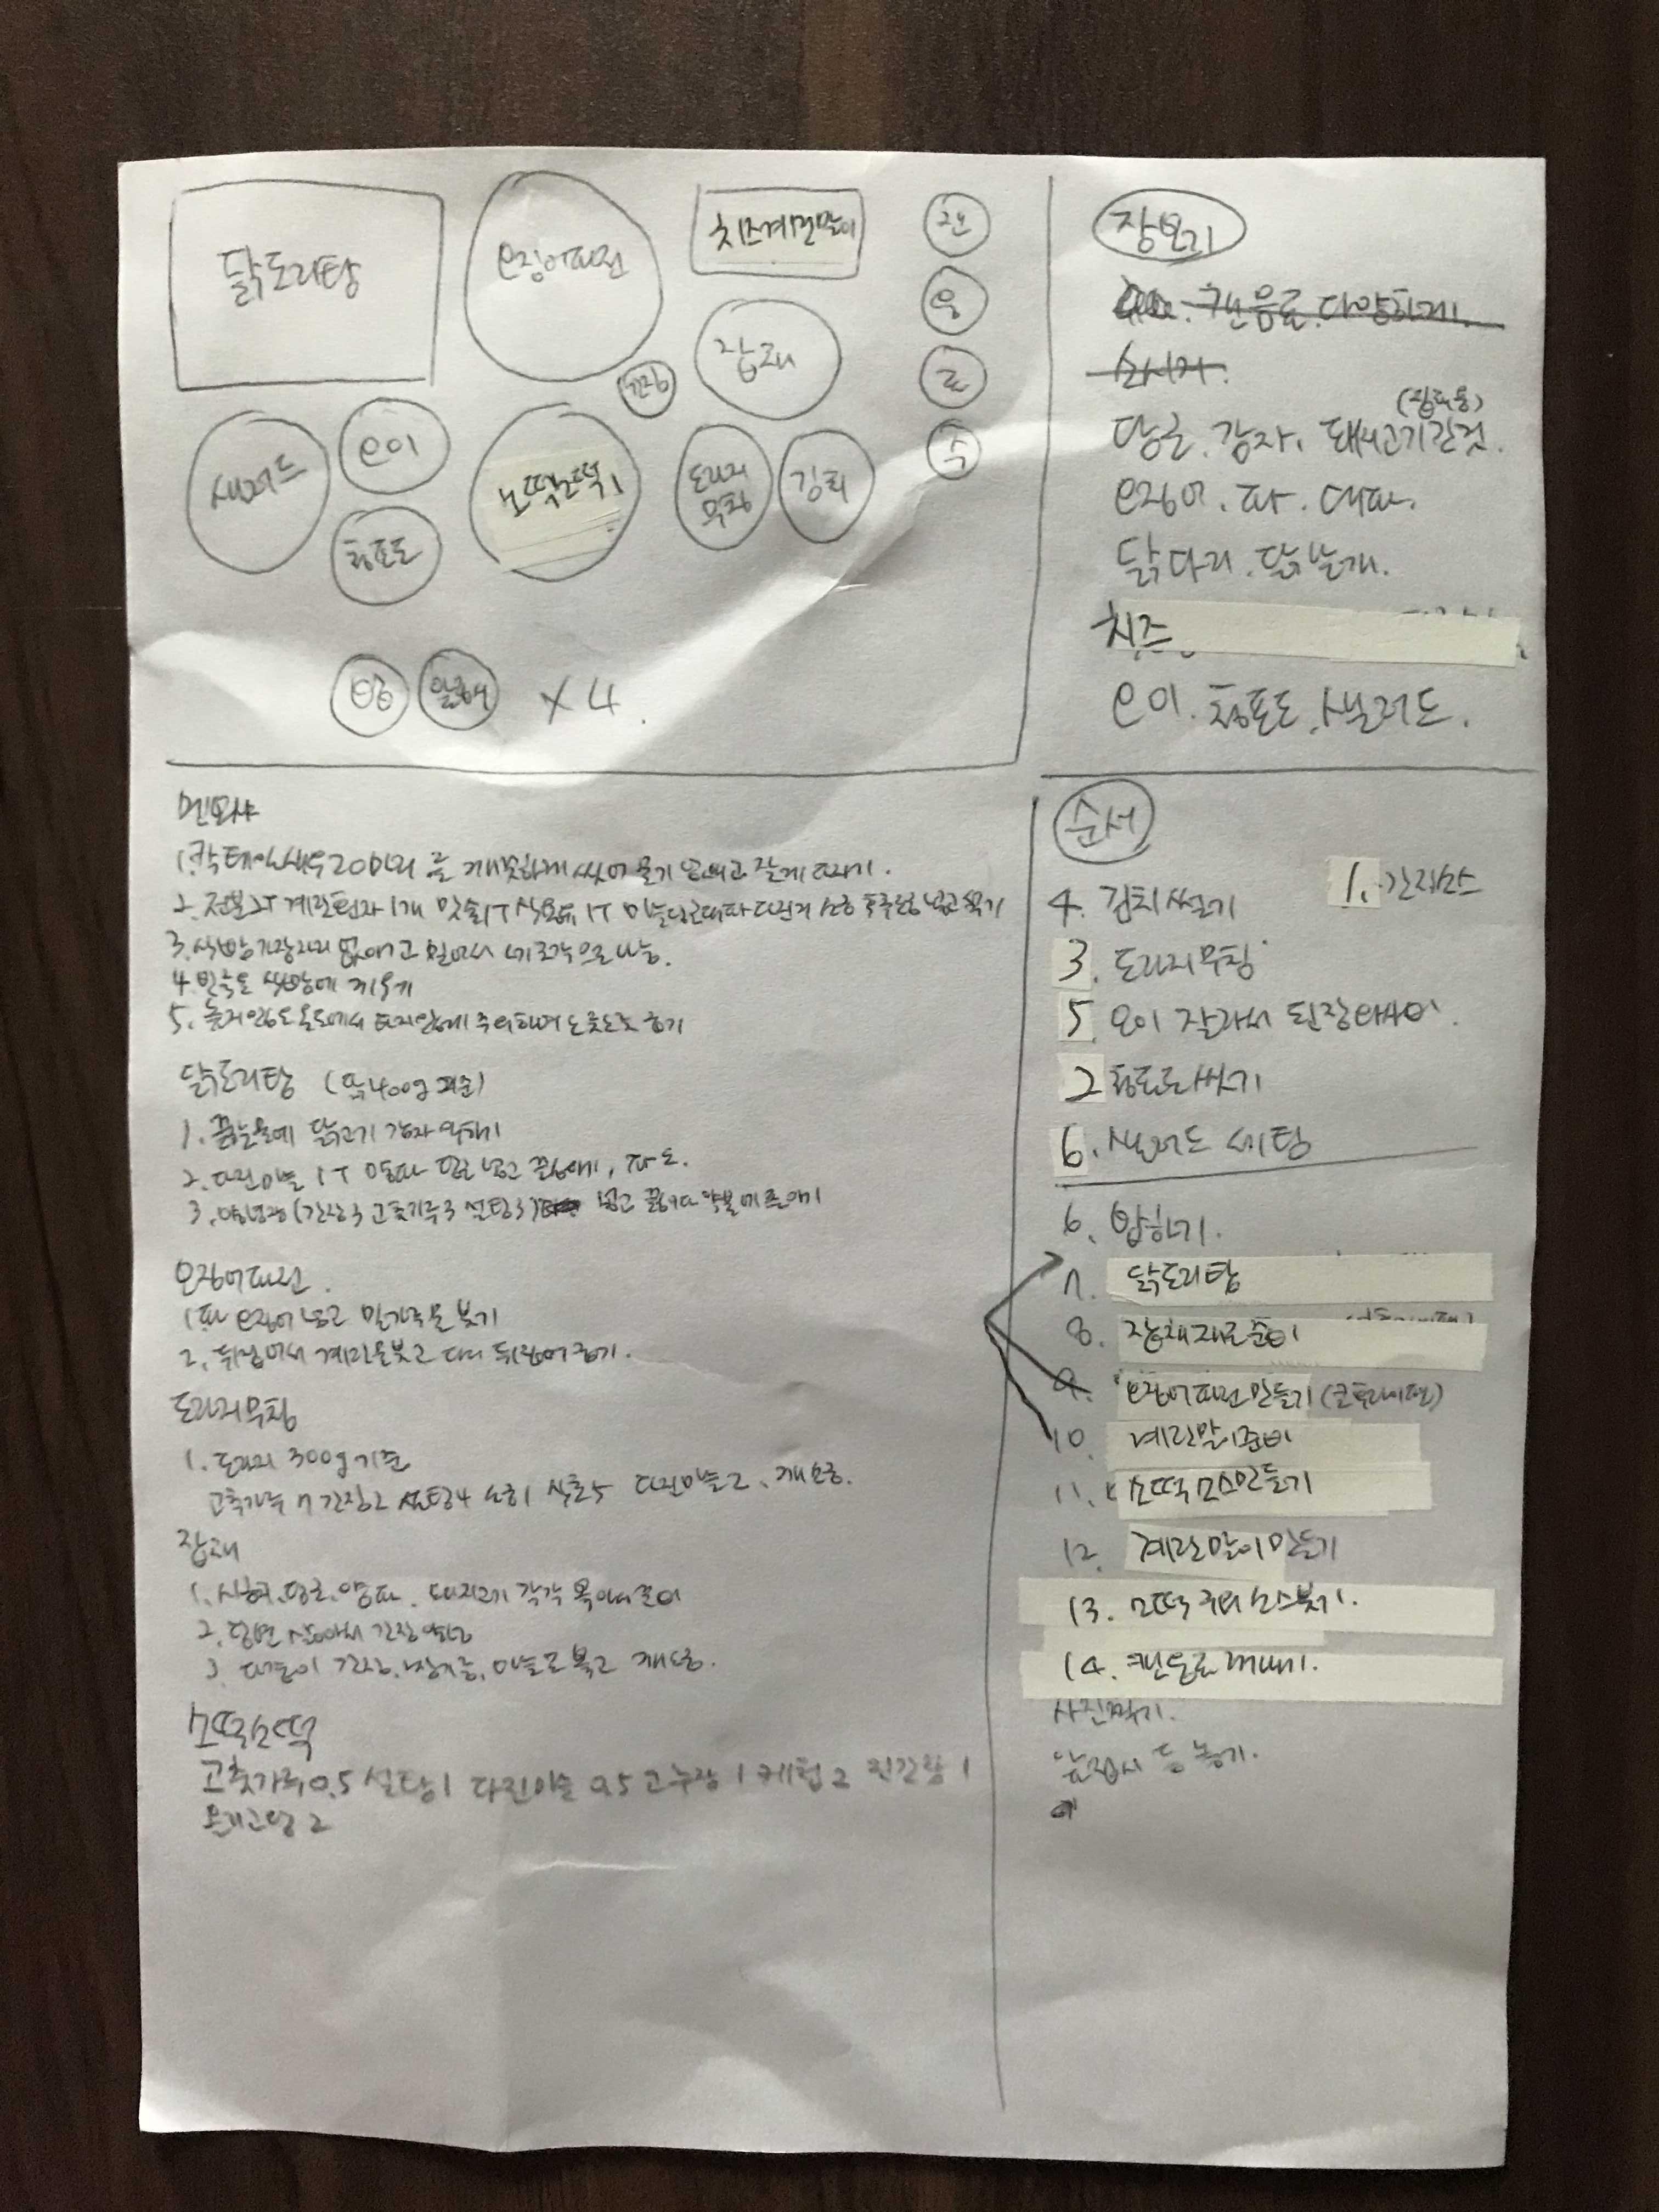 닭도리탕
오징어파전
치즈계란말이
캔
음
료
수
잡채
간장
샐러드
오이
청포도
소떡소떡
도라지
무침
김치
밥
앞접시 X 4.
장보기
캔음료. 다양하게.
소시지.
(잡채용)
당근. 감자. 돼지고기간것.
오징어. 파. 대파.
닭다리. 닭날개.
치즈
오이. 청포도. 샐러드.
멘보샤
1. 칵테일새우 20마리를 깨끗하게 씻어 물기 없애고 잘게 다지기.
2. 전분2T 계란흰자 1개 맛술1T 식용유 1T 마늘 당근 대파 다진거 소금 후추 넣고
3. 식빵 가장자리 없애고 밀어서 네조각으로 나눔.
4. 반죽을 식빵에 끼우기
5. 온도에서 타지않게 주의하며 노릇노릇 튀기기
닭도리탕 (떡400g 기준)
1. 끓는물에 닭고기 감자 익히기
2. 다진마늘 1T 양파 당근 넣고 끓이기, 파도.
3. 양념장(간장3 고춧가루3 설탕3) 넣고 끓이다 약불에 졸이기
오징어파전.
1. 파 오징어 넣고 밀가루물 붓기
2. 뒤집어서 계란물붓고 다시 뒤집어 굽기.
도라지무침
1. 도라지 300g기준
고춧가루 7 간장2 설탕4 소금1 식초5 다진마늘2, 깨소금.
잡채
1. 시금치. 당근. 양파. 돼지고기 각각 볶아서 준비
2. 당면 삶아서 간장
3. 간장. 참기름, 마늘로 볶고 깨소금.
소떡소떡
고춧가루0.5 설탕1 다진마늘 0.5 고추장 1 케첩2 진간장 1
올리고당 2
순서
1. 간장소스
4. 김치썰기
3. 도라지무침
5. 오이 잘라서 된장
2 청포도씻기
6. 샐러드 세팅
6. 밥하기.
7. 닭도리탕
8. 잡채재료준비
9. 오징어파전만들기 (큰후라이팬)
10. 계란말이준비
11. 소떡 소스만들기
12. 계란말이만들기
13. 소떡 위에 소스붓기.
14. 캔음료 꺼내기.
사진찍기.
앞접시 등 놓기.